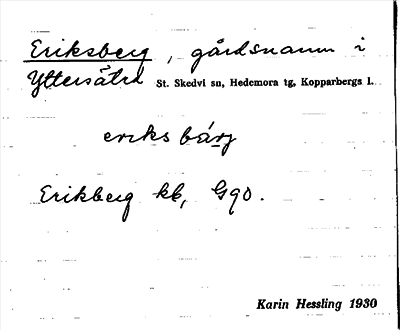 Eriksberg, gårdsnamn i
Yttersätra St. Skedvi sn, Hedemora tg, Kopparbergs l.
eriksbárj
Erikberg kb, G90.
Karin Hessling 1930